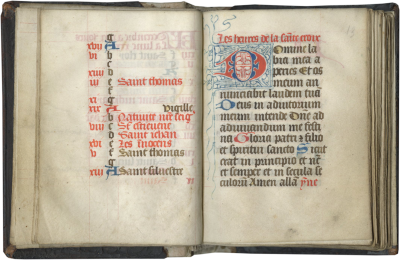 g
xvii A
b
vi c
d
xiiii e
iii f Saint thomas
g
xi A
xix b Vigille
c Nativite nre seig
viii d St estienne
e Saint jehan
xvi f Les inocens
v g Saint thomas
A
xiii Saint silvestre
Les heures de la sainte croix
Domine la
bia mea a
peries Et os
meum an
nunciabit laudem tuã
Deus in adiutorium
meum intende Dñe ad
adiuvandum me festi
na Gloria patri et filio
et spiritui sancto Sicut
erat in principio et nc̃
et semper et in secula se
culorum Amen alla yñe